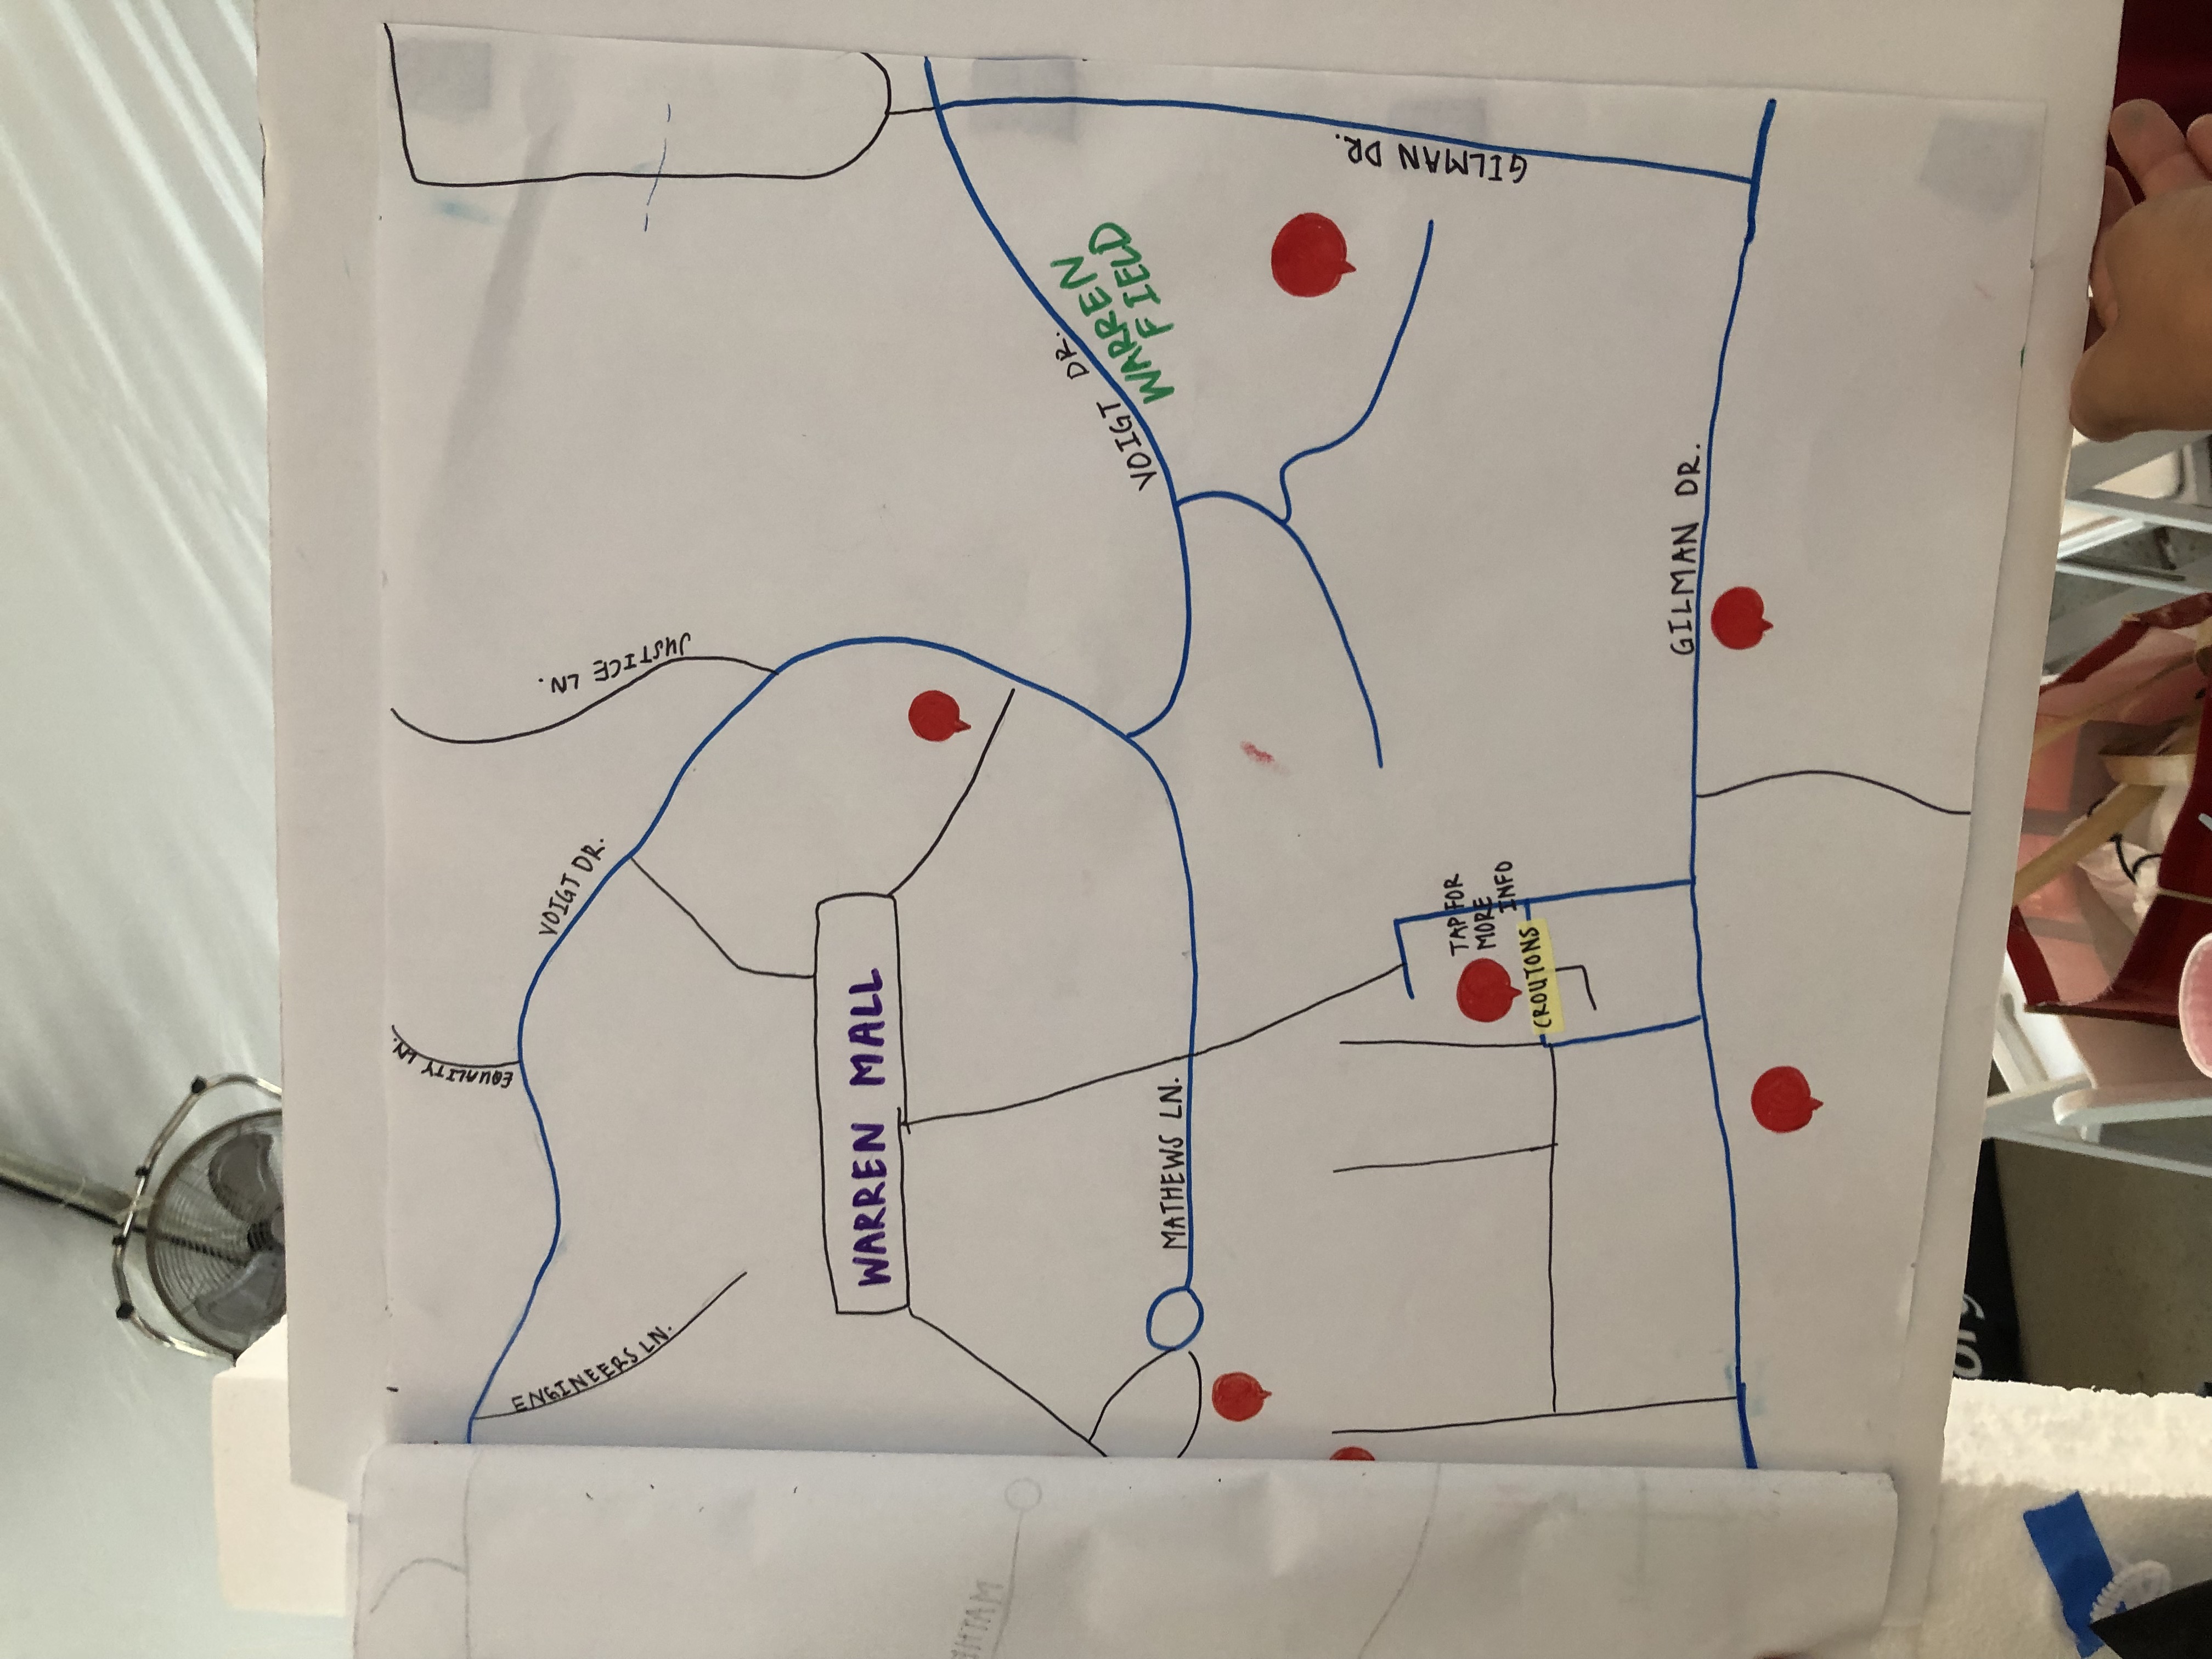 EQUALITY LN.
ENGINEERS LN.
VOIGT DR.
JUSTICE LN.
WARREN MALL
MATHE
VOIGT DR.
WARREN
FIELD
MATHEWS LN.
GILMAN DR.
TAP FOR
MORE
INFO
CROUTONS
GILMAN DR.